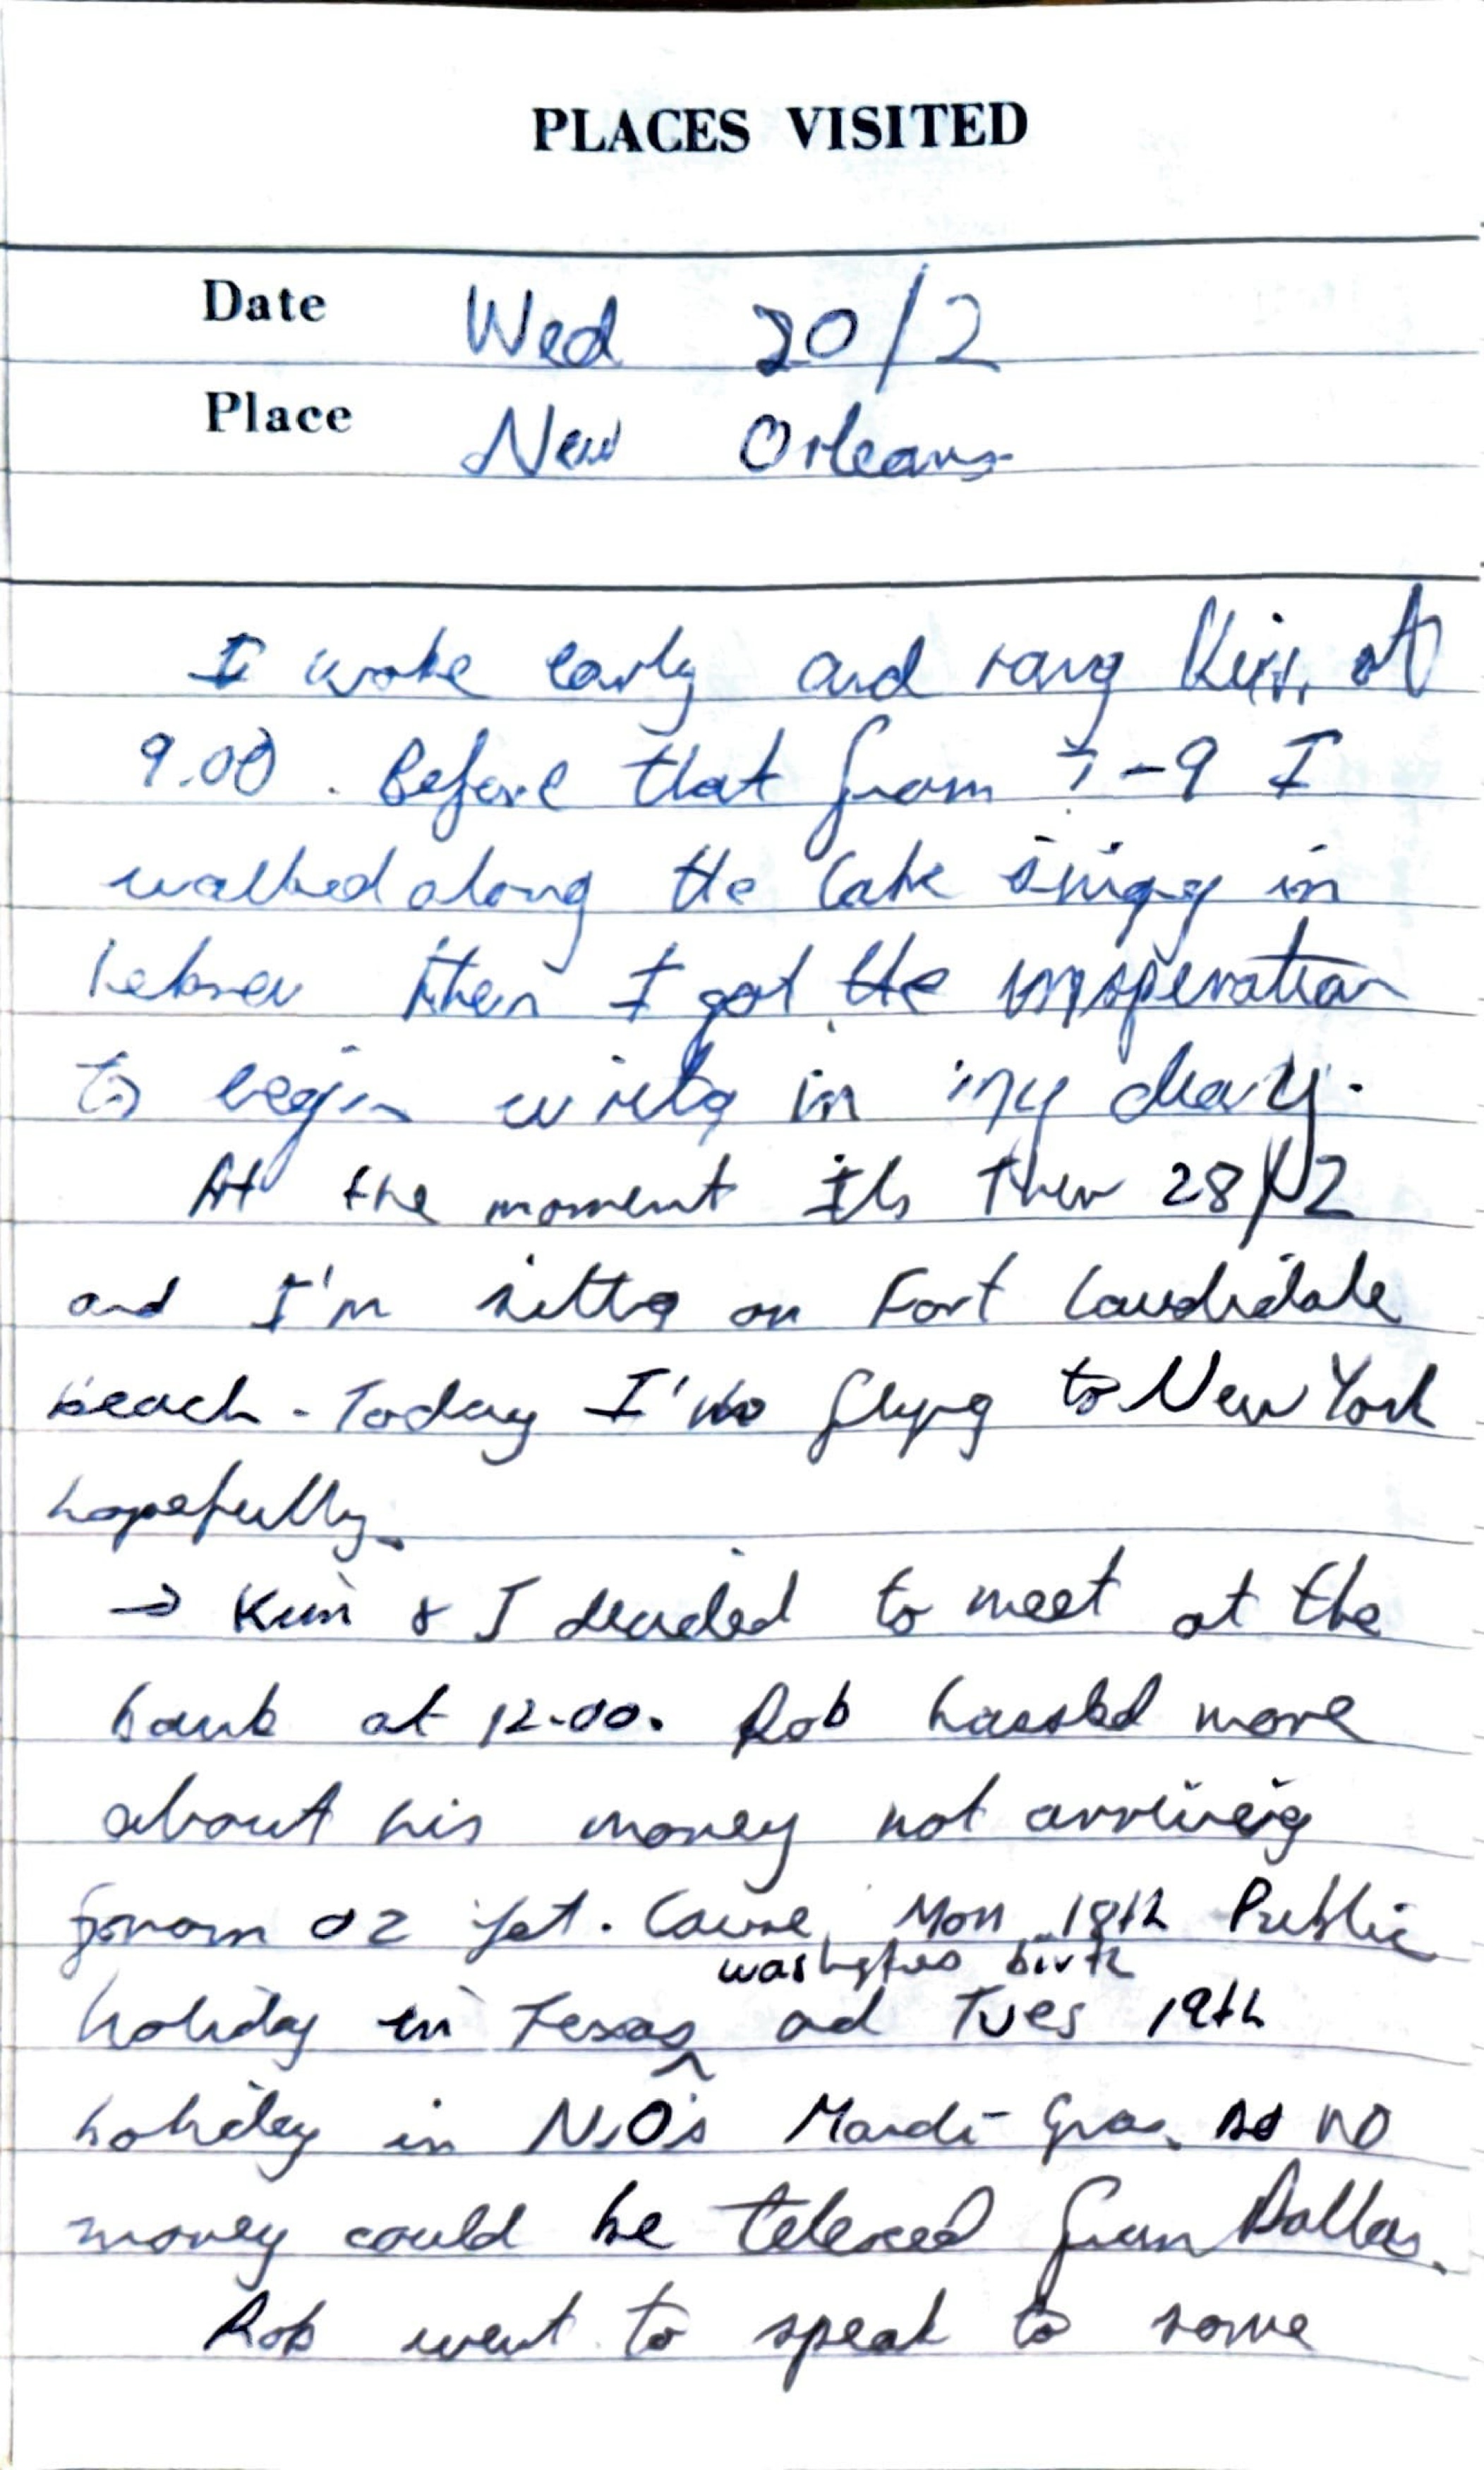 PLACES VISITED
Date Wed 20/2
Place New Orleans
I woke early and rang Kim at
9.00. Before that from 7-9 I
walked along the lake singg in
hebrew then I got the insperation
to begin writg in my diary.
At the moment its Thur 28/2
and I'm sittg on Fort Laudidale
beach. Today I'm flyng to New York
hopefully.
→ Kim & I decided to meet at the
bank at 12.00. Rob hassled more
about his money not arriveig
from OZ yet. Cause Mon 18th Public
washgtns birth
holiday in Texas ^ ad Tues 19th
holiday in N.O's Mardi-Gras. so no
money could be telexed from Dallas.
Rob went to speak to some